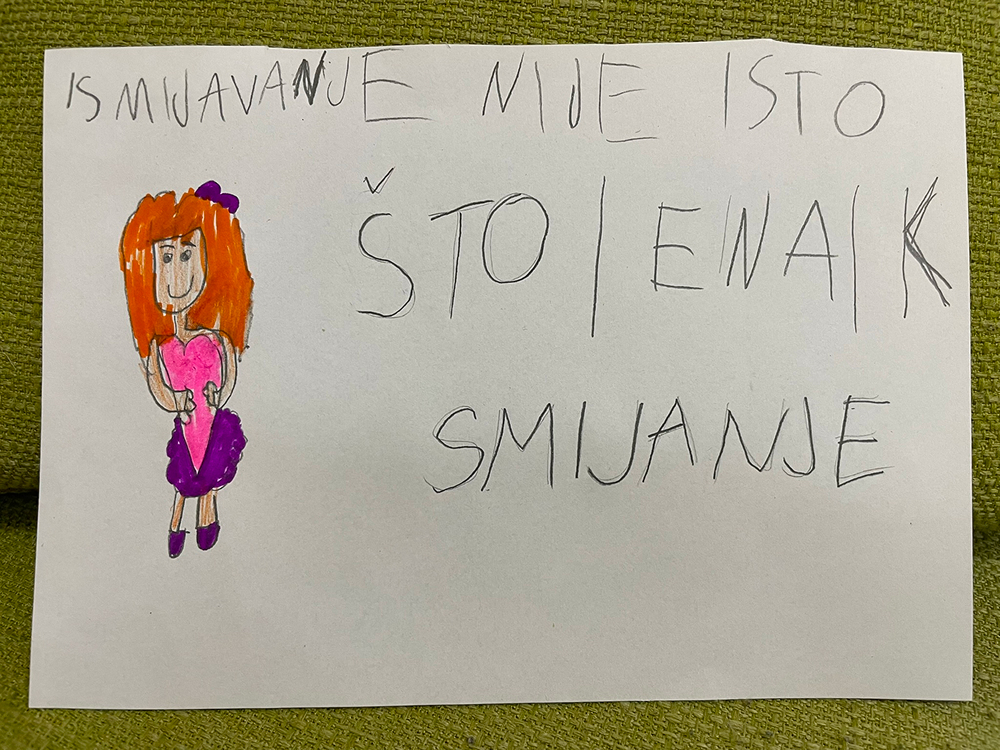 ISMIJAVANJE NIJE ISTO
ŠTO I ENAIK
SMIJANJE